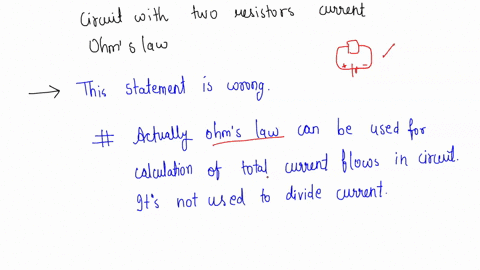 Circuit with two resistors current
Ohm's law
+ -
→ This statement is wrong.
# Actually ohm's law can be used for
calculation of total current flows in circuit.
It's not used to divide current.